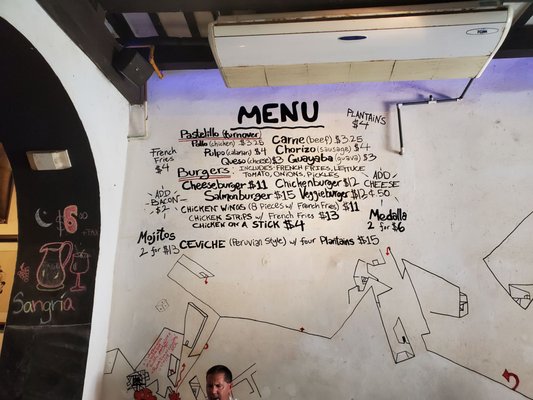 MENU
PLANTAINS
$4
Pastelillo (turnover)
Pollo (chicken) $3.25
Carne (beef) $3.25
Pulpo $4
Chorizo (sausage) $4
Queso (cheese) $3
Guayaba (guava) $3
French
Fries
$4
Burgers: INCLUDES FRENCH FRIES, LETTUCE
TOMATO, ONIONS, PICKLES
Cheeseburger $11
Chickenburger $12
Salmonburger $15
Veggieburger $12
ADD
CHEESE
$.50
ADD
BACON
$2
CHICKEN WINGS (8 Pieces w/ French Fries) $11
CHICKEN STRIPS w/ French Fries $13
CHICKEN ON A STICK $4
Medalla
2 for $6
Mojitos
2 for $13
CEVICHE (Peruvian Style) w/ four Plantains $15
$6
Sangria